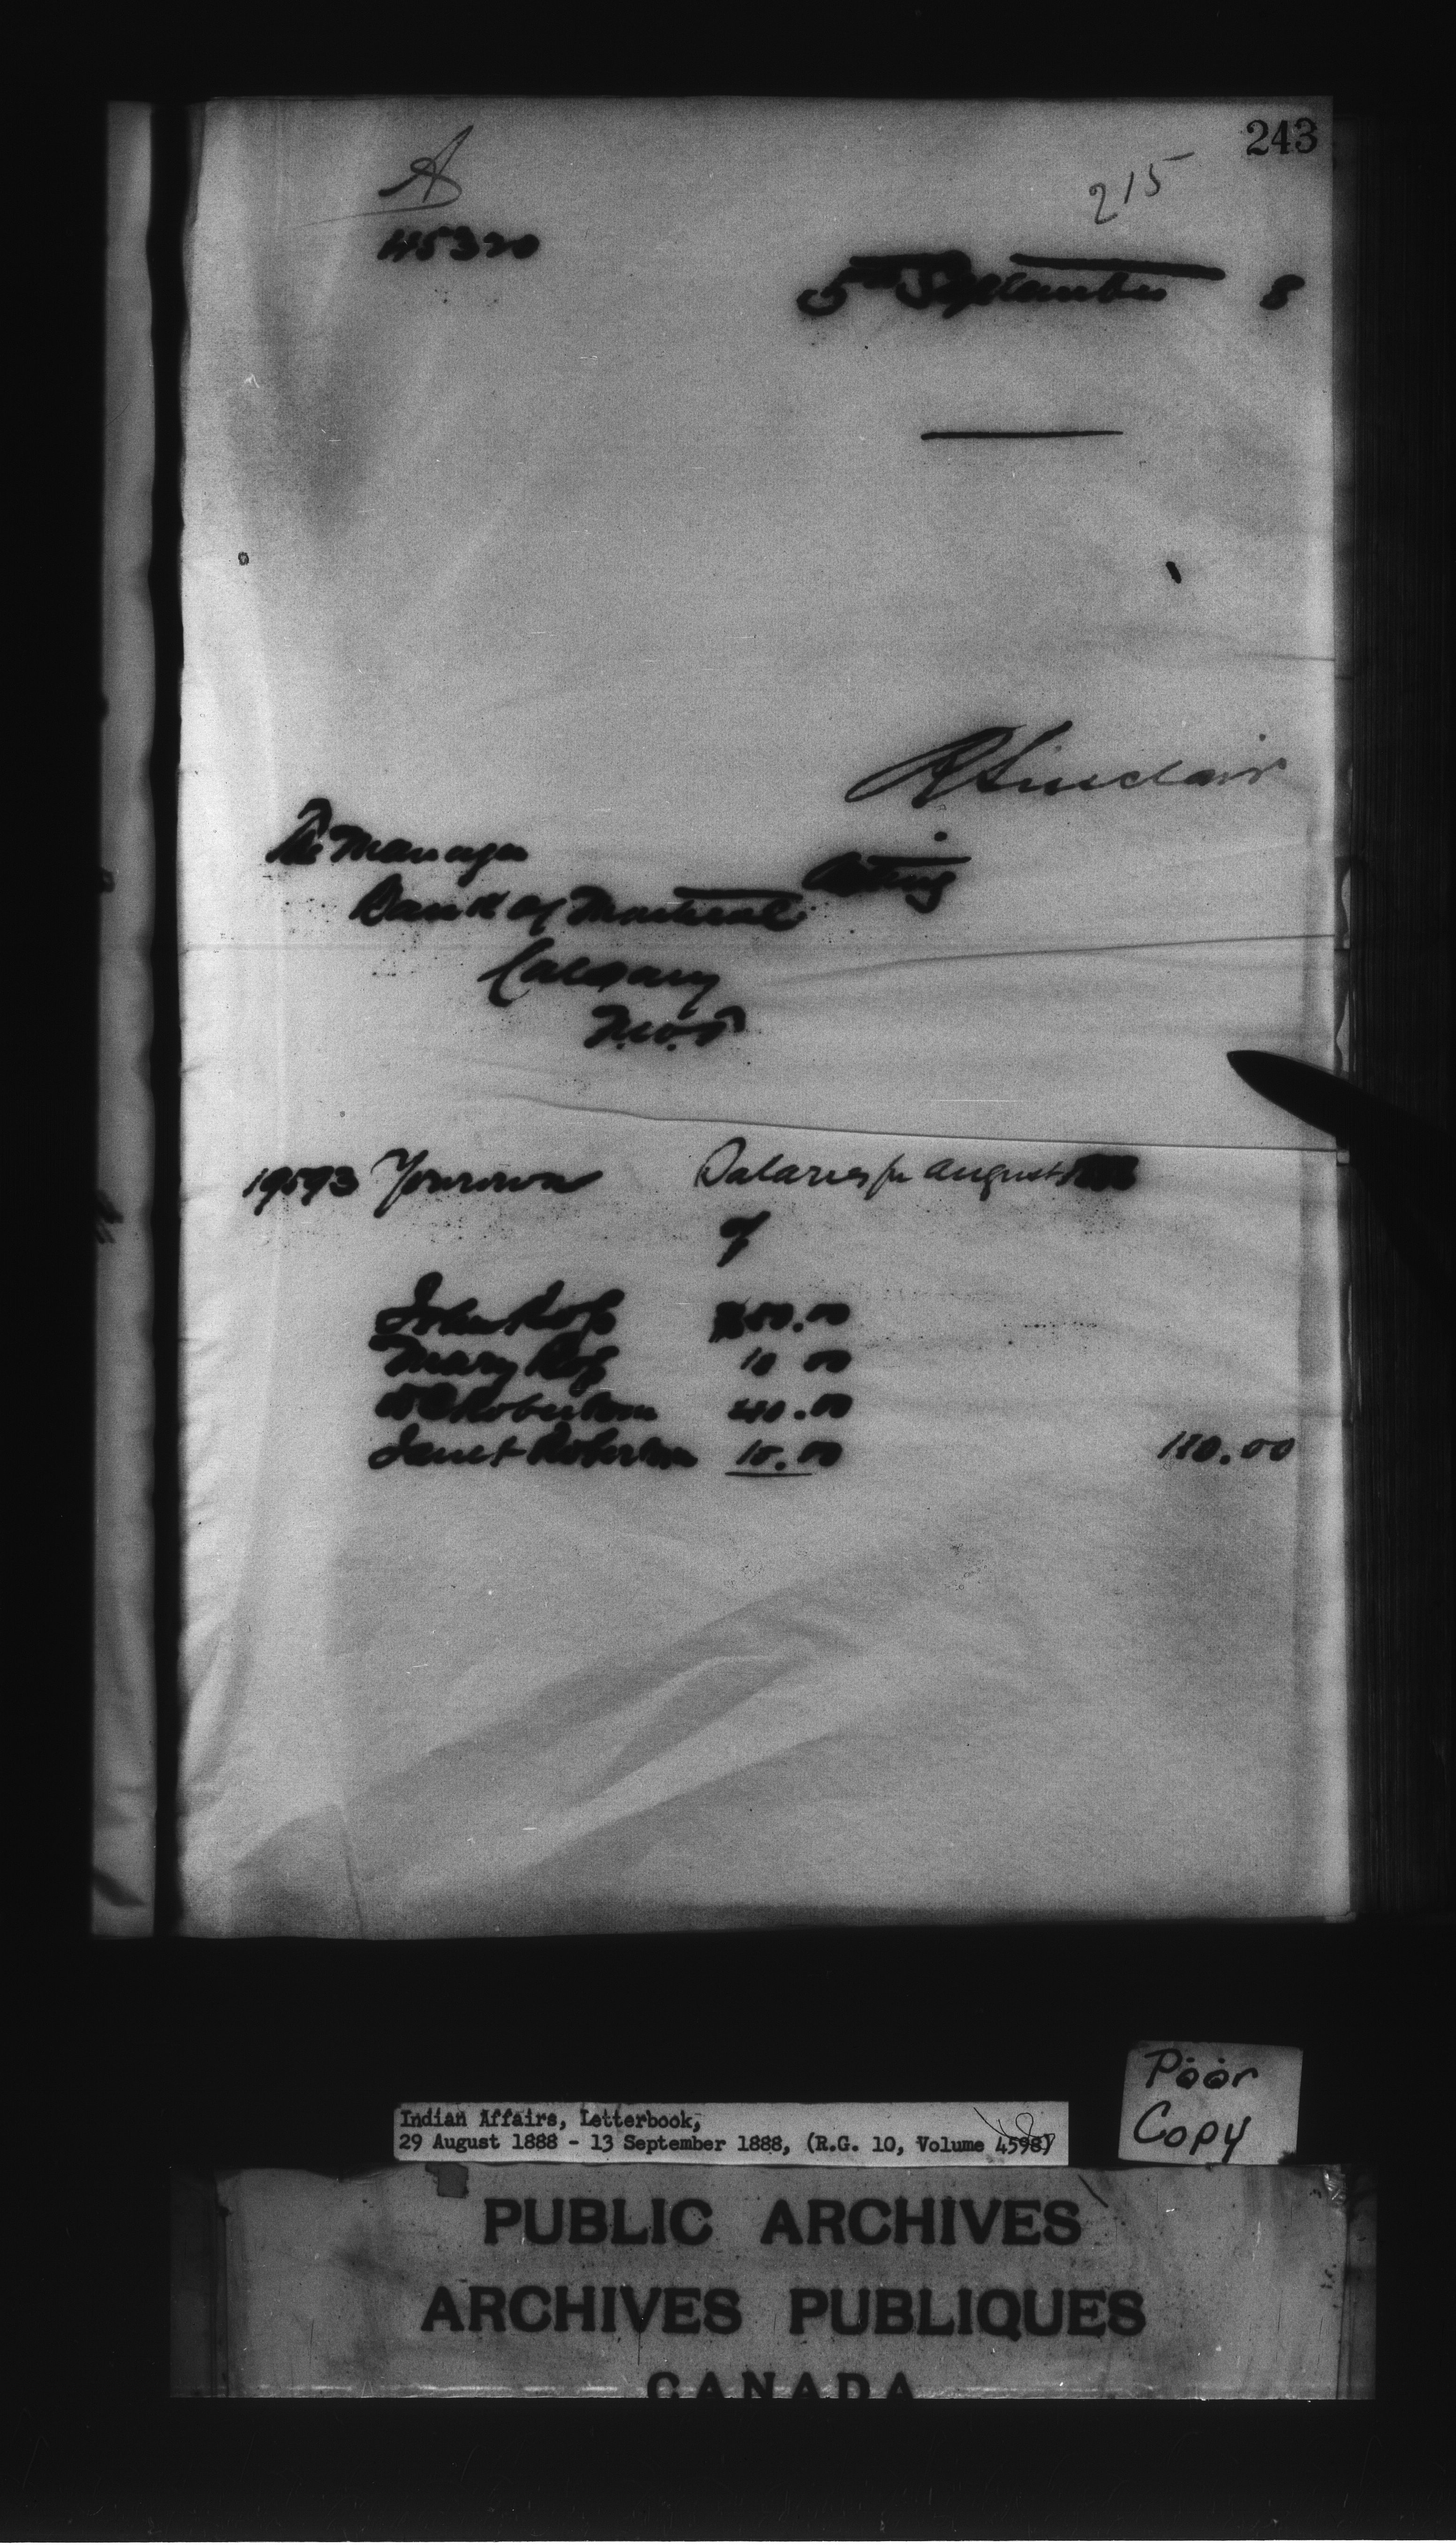 243
A
215
45320
5th September 8
R Sinclair
The Manager
Acting
Bank of Montreal
Calgary
N.W.T
19593 Yourown Salaries for August 1888
of
John Roß
Mary Roß 10 00
Robertson 40.00
Janet Robertson
110.00
Poor
Copy
Indian Affairs, Letterbook,
29 August 1888 - 13 September 1888, (R.G. 10, Volume 4598)
PUBLIC ARCHIVES
ARCHIVES PUBLIQUES
CANADA